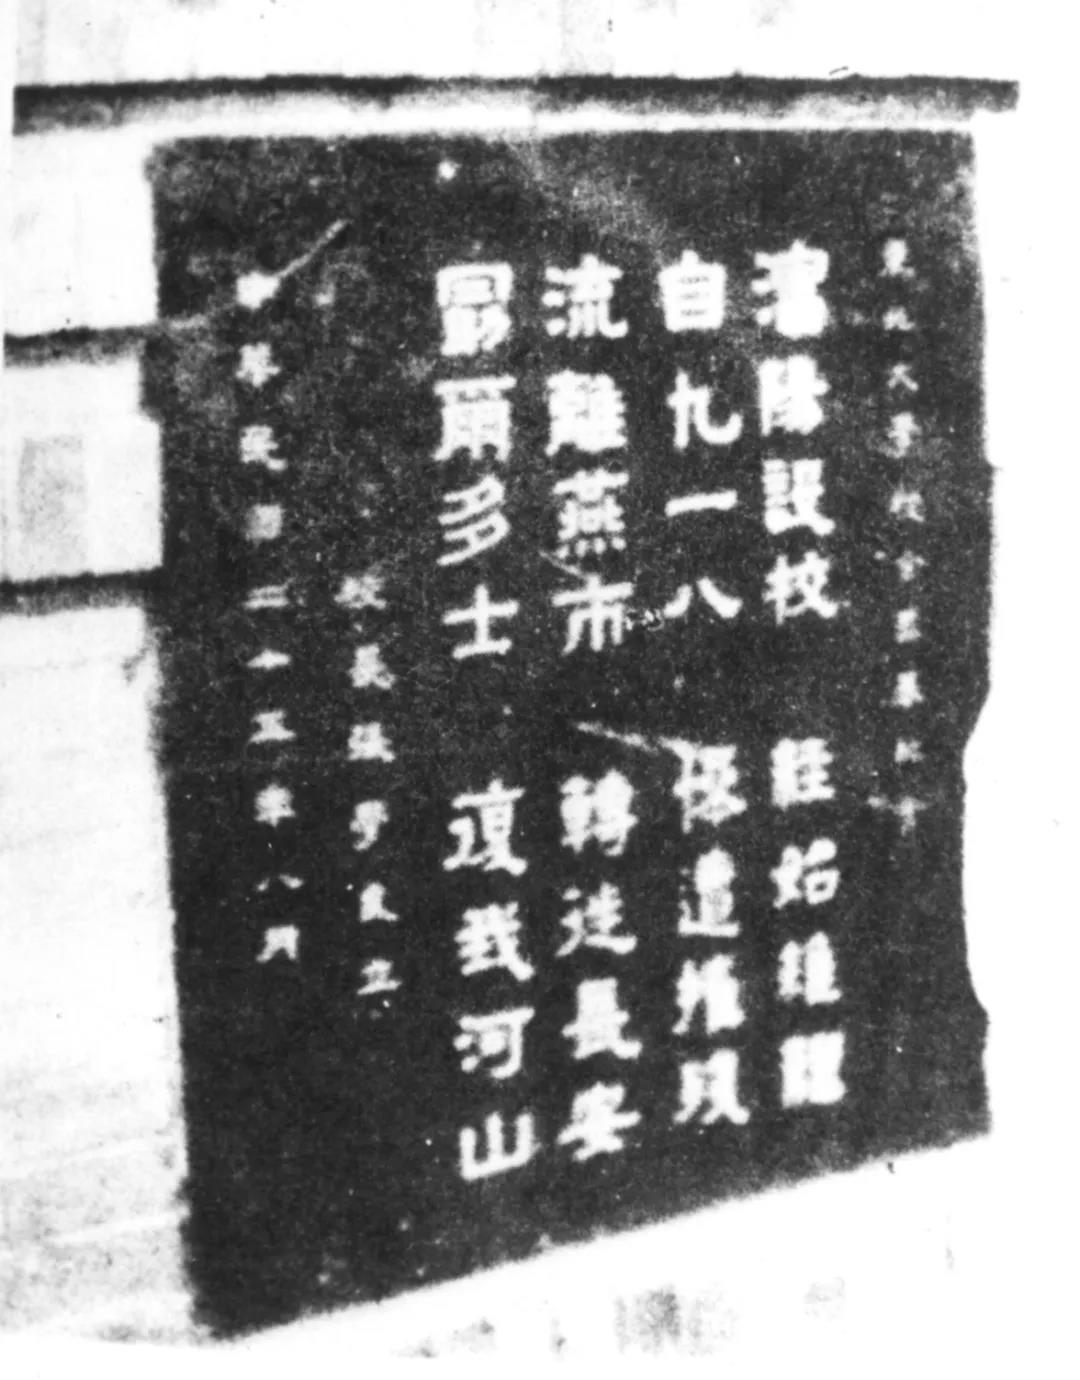 東北大學校舍奠基紀念
瀋陽設校 經始維艱
自九一八 慘遭摧殘
流離燕市 轉徙長安
勗爾多士 復我河山
校長張學良立
中華民國二十五年八月